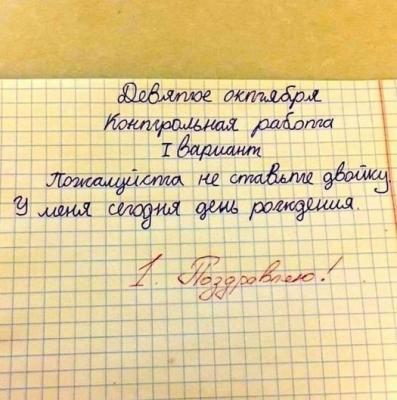 Девятое октября
Контрольная работа
I вариант
Пожалуйста не ставьте двойку.
У меня сегодня день рождения.
1. Поздравляю!